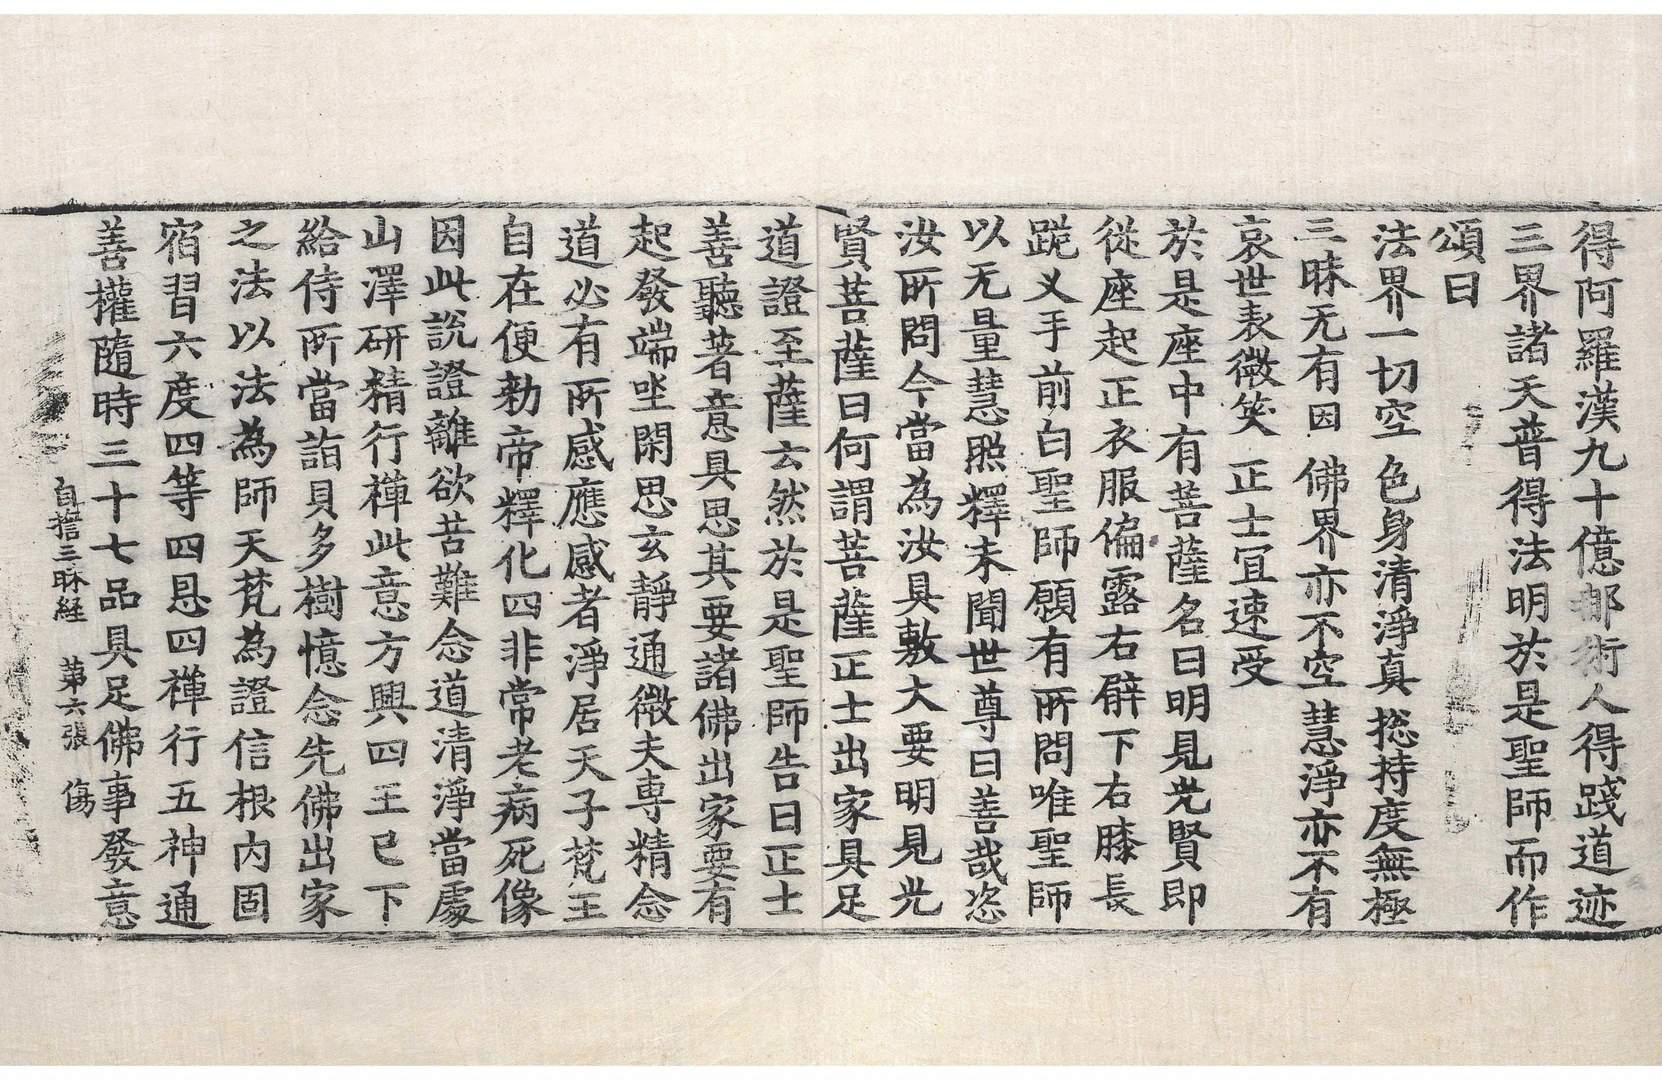 得阿羅漢九十億郍術人得踐道迹
三界諸天普得法明於是聖師而作
頌曰
法界一切空 色身清淨真 揔持度無極
三昧无有因 佛界亦不空 慧淨亦不有
哀世表微笑 正士宜速受
於是座中有菩薩名曰明見光賢即
從座起正衣服偏露右臂下右膝長
跪叉手前白聖師願有所問唯聖師
以无量慧照釋未聞世尊曰善哉恣
汝所問今當為汝具敷大要明見光
賢菩薩曰何謂菩薩正士出家具足
道證至薩云然於是聖師告曰正士
善聽著意具思其要諸佛出家要有
起發端坐閑思玄靜通微夫專精念
道必有所感應感者淨居天子梵王
自在便勑帝釋化四非常老病死像
因此說證離欲苦難念道清淨當處
山澤研精行禪此意方興四王已下
給侍所當詣貝多樹憶念先佛出家
之法以法為師天梵為證信根內固
宿習六度四等四恩四禪行五神通
善權隨時三十七品具足佛事發意
自誓三昧経 第六張 傷